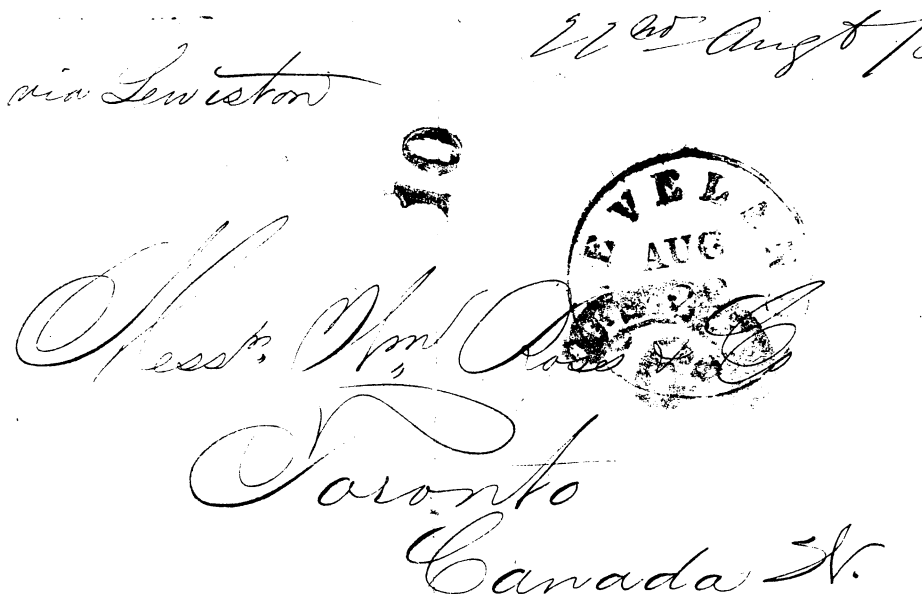 22nd Augt
via Lewiston
10
EVEL
AUG
Messrs. Wm Ross & Co
Toronto
Canada W.